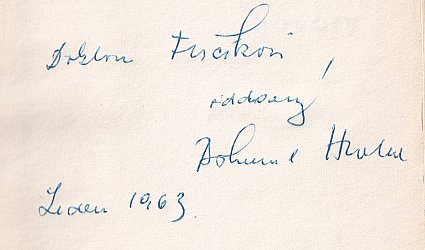 Doktoru
oddaný
Bohumil Hrabal
Leden 1963